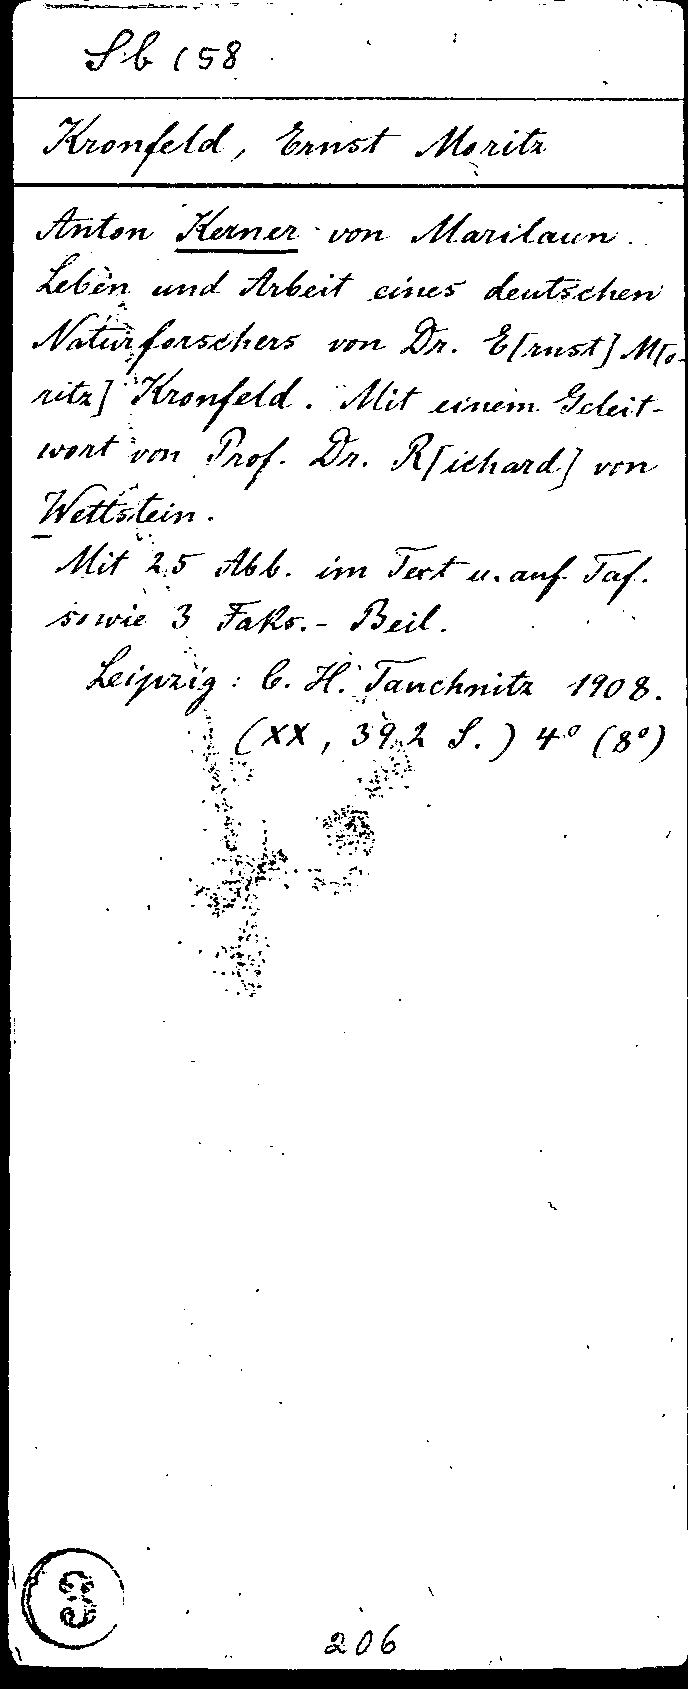 Sb 158
Kronfeld, Ernst Moritz
Anton Kerner von Marilaun.
Leben und Arbeit eines deutschen
Naturforschers von Dr. E[rnst] M[o-
ritz] Kronfeld. Mit einem Geleit-
wort von Prof. Dr. R[ichard] von
Wettstein.
Mit 25 Abb. im Text u. auf Taf.
sowie 3 Faks.-Beil.
Leipzig: C. H. Tauchnitz 1908.
(XX, 392 S.) 4° (8°)
3
206